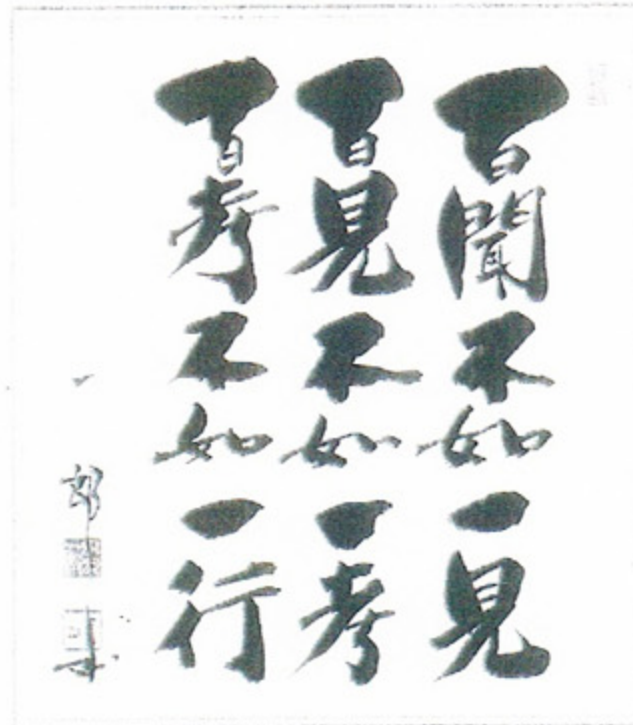 百聞不如一見
百見不如一考
百考不如一行
一郎